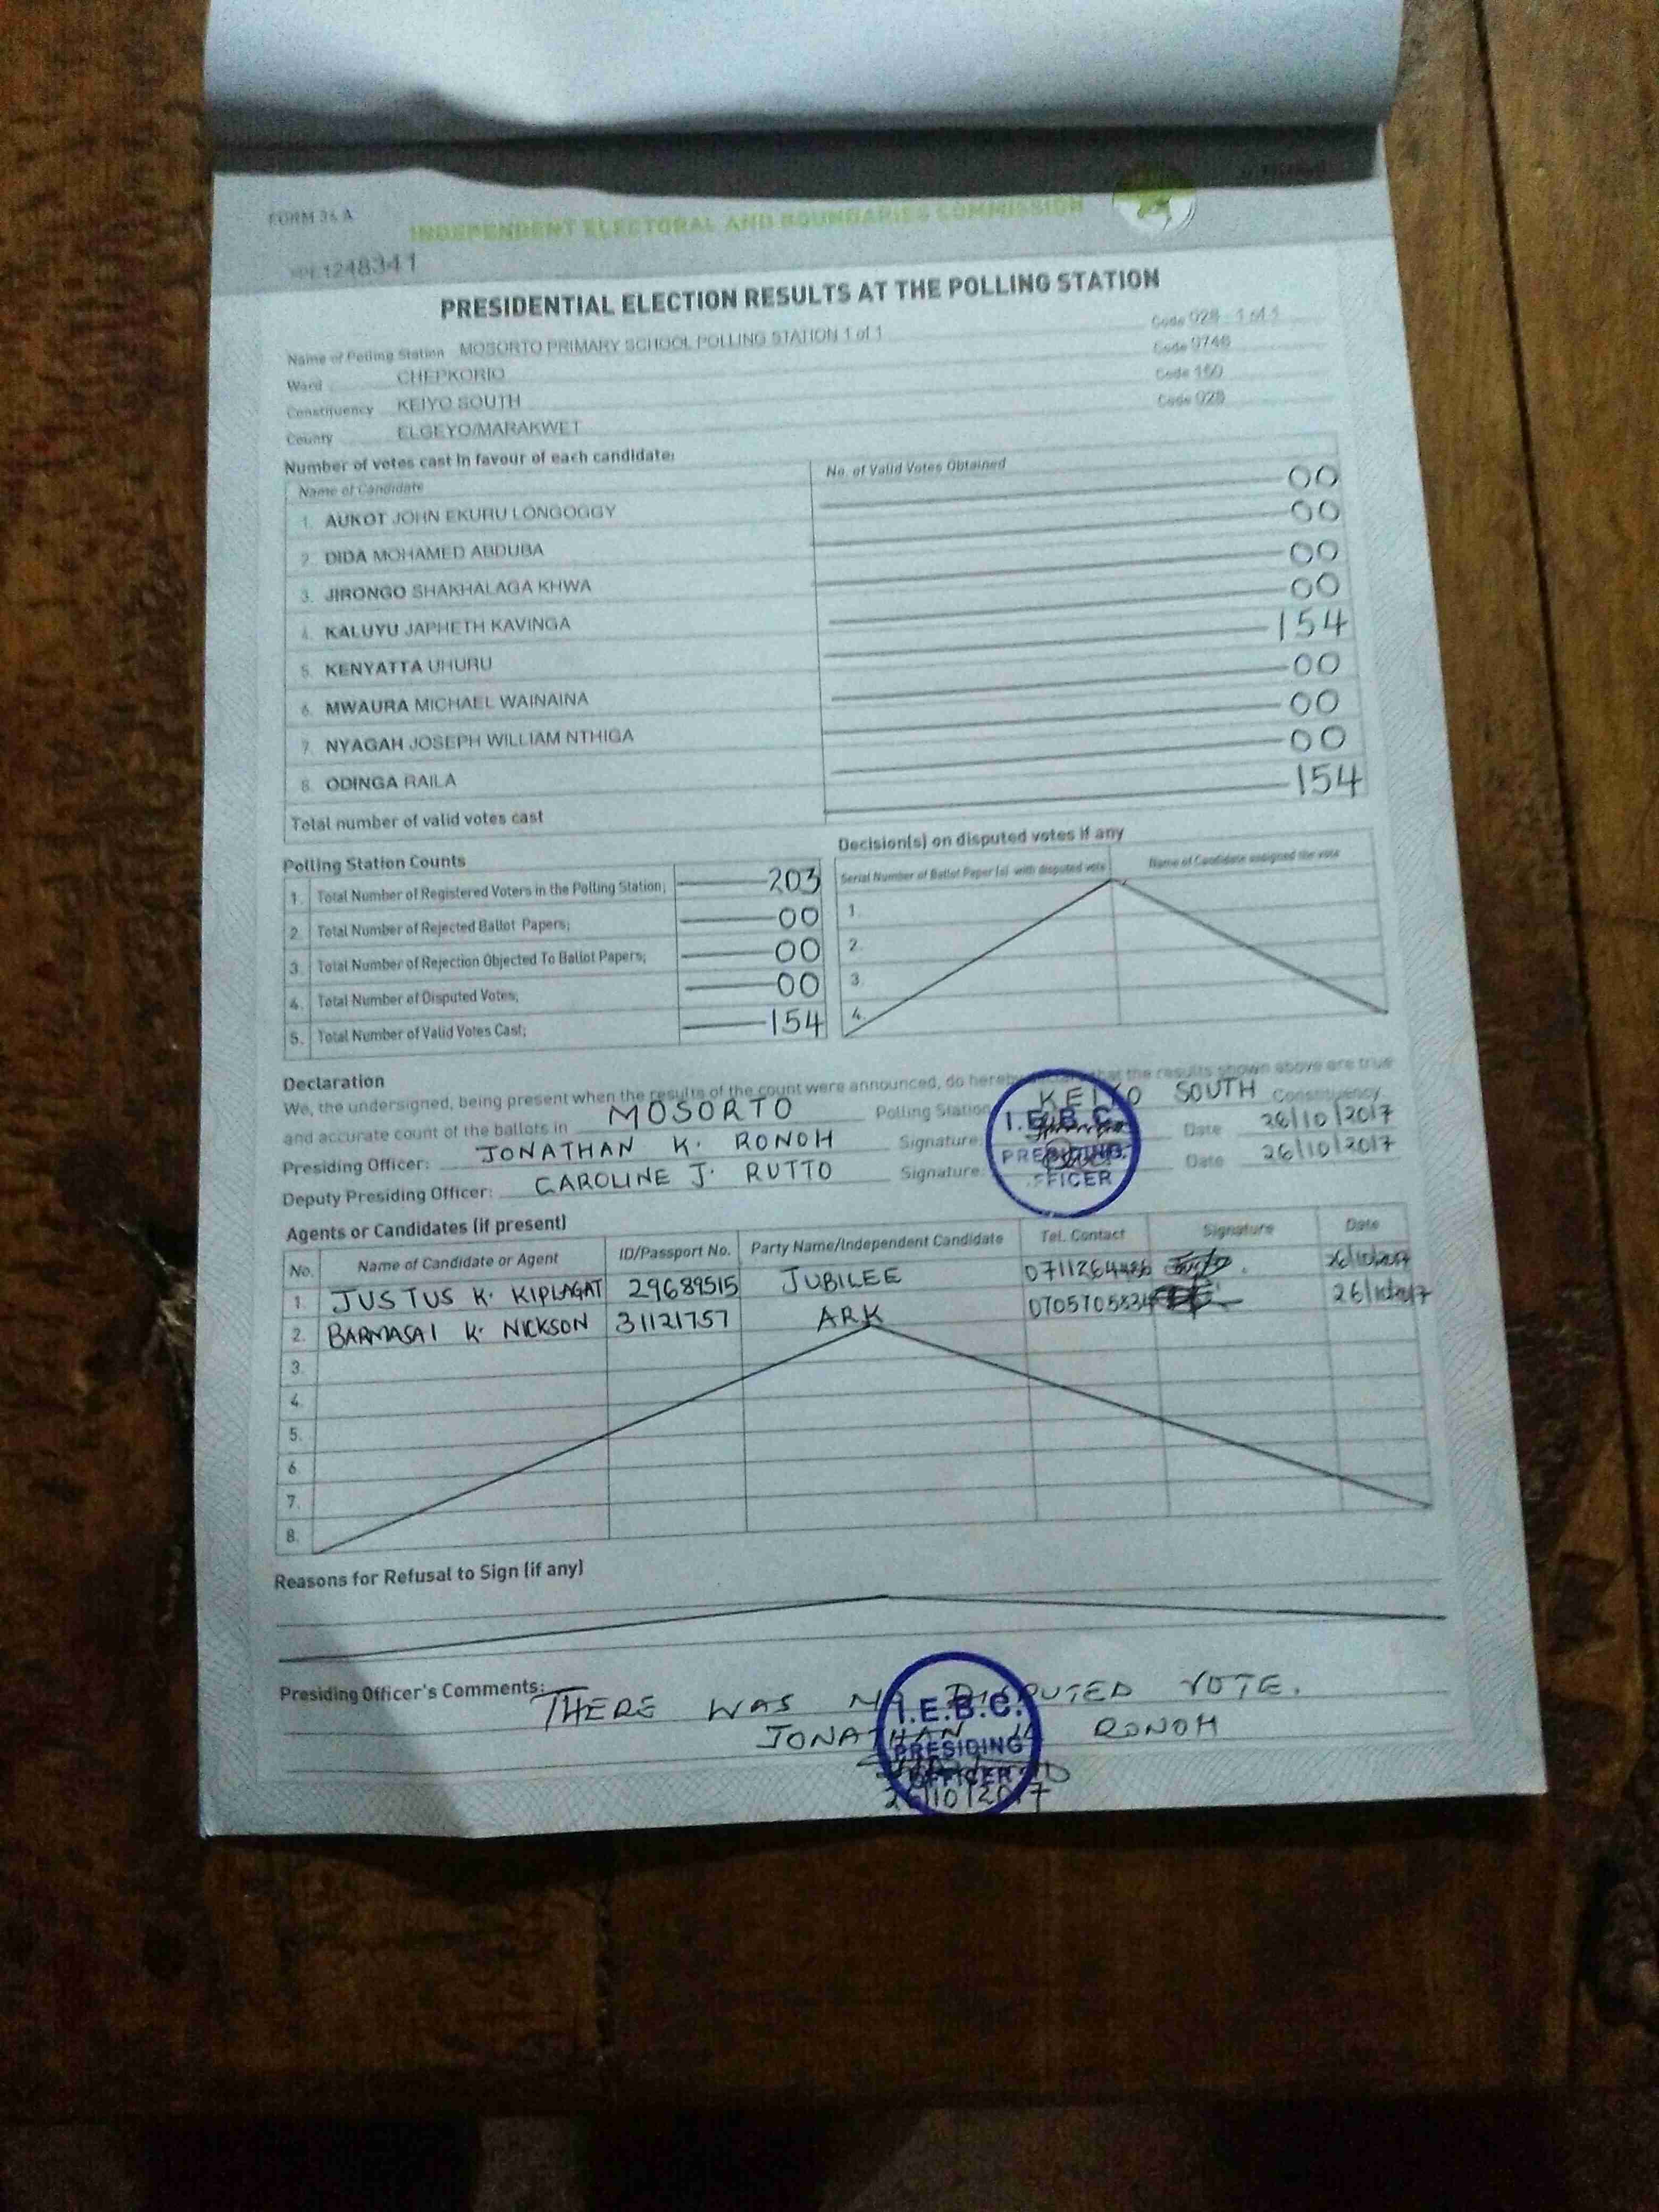 FORM 34 A
INDEPENDENT ELECTORAL AND BOUNDARIES COMMISSION
1248341
PRESIDENTIAL ELECTION RESULTS AT THE POLLING STATION
Name of Polling Station MOSORTO PRIMARY SCHOOL POLLING STATION 1 of 1 Code 028 - 1 of 1
Ward CHEPKORIO Code 0746
Constituency KEIYO SOUTH Code 150
County ELGEYO/MARAKWET Code 028
Number of votes cast in favour of each candidate:
Name of Candidate No. of Valid Votes Obtained
1. AUKOT JOHN EKURU LONGOGGY 00
2. DIDA MOHAMED ABDUBA 00
3. JIRONGO SHAKHALAGA KHWA 00
4. KALUYU JAPHETH KAVINGA 00
5. KENYATTA UHURU 154
6. MWAURA MICHAEL WAINAINA 00
7. NYAGAH JOSEPH WILLIAM NTHIGA 00
8. ODINGA RAILA 00
Total number of valid votes cast 154
Polling Station Counts
1. Total Number of Registered Voters in the Polling Station; 203
2. Total Number of Rejected Ballot Papers; 00
3. Total Number of Rejection Objected To Ballot Papers; 00
4. Total Number of Disputed Votes; 00
5. Total Number of Valid Votes Cast; 154
Decision(s) on disputed votes if any
Serial Number of Ballot Paper (s) with disputed vote Name of Candidate assigned the vote
1.
2.
3.
4.
Declaration
We, the undersigned, being present when the results of the count were announced, do hereby that the results shown above are true
and accurate count of the ballots in MOSORTO Polling Station KEIYO SOUTH Constituency
Presiding Officer: JONATHAN K. RONOH Signature Date 26/10/2017
Deputy Presiding Officer: CAROLINE J. RUTTO Signature Date 26/10/2017
I.E.B.C.
PRESIDING
OFFICER
Agents or Candidates (if present)
No. Name of Candidate or Agent ID/Passport No. Party Name/Independent Candidate Tel. Contact Signature Date
1. JUSTUS K. KIPLAGAT 29689515 JUBILEE 0711264486 26/10/2017
2. BARMASAI K. NICKSON 31121757 ARK 0705705834 26/10/2017
3.
4.
5.
6
7.
8.
Reasons for Refusal to Sign (if any)
Presiding Officer's Comments: THERE WAS NO DISPUTED VOTE.
JONATHAN K RONOH
26/10/2017
I.E.B.C.
PRESIDING
OFFICER